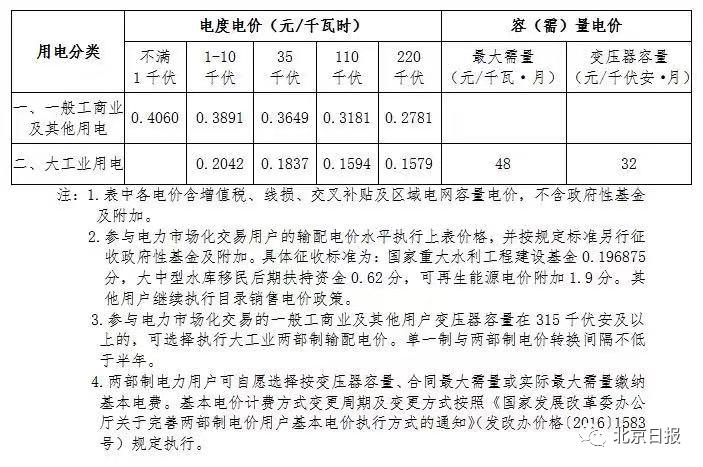 用电分类 电度电价（元/千瓦时） 容（需）量电价
不满1千伏 1-10千伏 35千伏 110千伏 220千伏 最大需量（元/千瓦·月） 变压器容量（元/千伏安·月）
一、一般工商业及其他用电 0.4060 0.3891 0.3649 0.3181 0.2781
二、大工业用电 0.2042 0.1837 0.1594 0.1579 48 32
注：1.表中各电价含增值税、线损、交叉补贴及区域电网容量电价，不含政府性基金
及附加。
2.参与电力市场化交易用户的输配电价水平执行上表价格，并按规定标准另行征
收政府性基金及附加。具体征收标准为：国家重大水利工程建设基金0.196875
分，大中型水库移民后期扶持资金0.62分，可再生能源电价附加1.9分。其
他用户继续执行目录销售电价政策。
3.参与电力市场化交易的一般工商业及其他用户变压器容量在315千伏安及以
上的，可选择执行大工业两部制输配电价。单一制与两部制电价转换间隔不低
于半年。
4.两部制电力用户可自愿选择按变压器容量、合同最大需量或实际最大需量缴纳
基本电费。基本电价计费方式变更周期及变更方式按照《国家发展改革委办公
厅关于完善两部制电价用户基本电价执行方式的通知》（发改办价格〔2016〕1583
号）规定执行。
北京日报